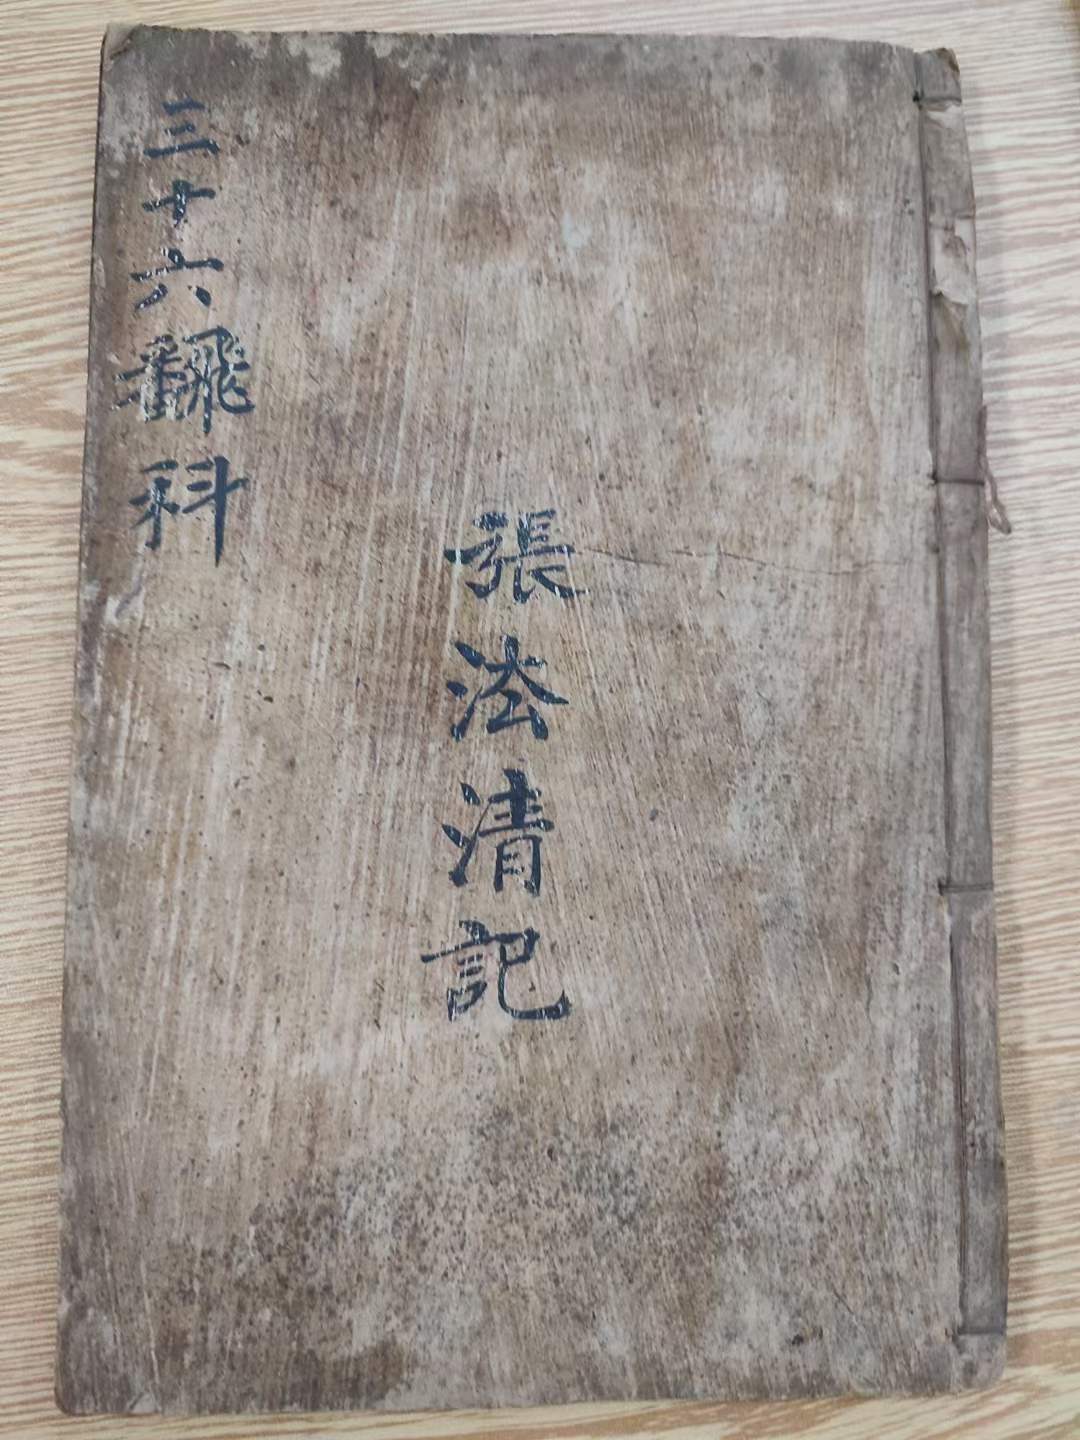 三十六飜科
張法清記